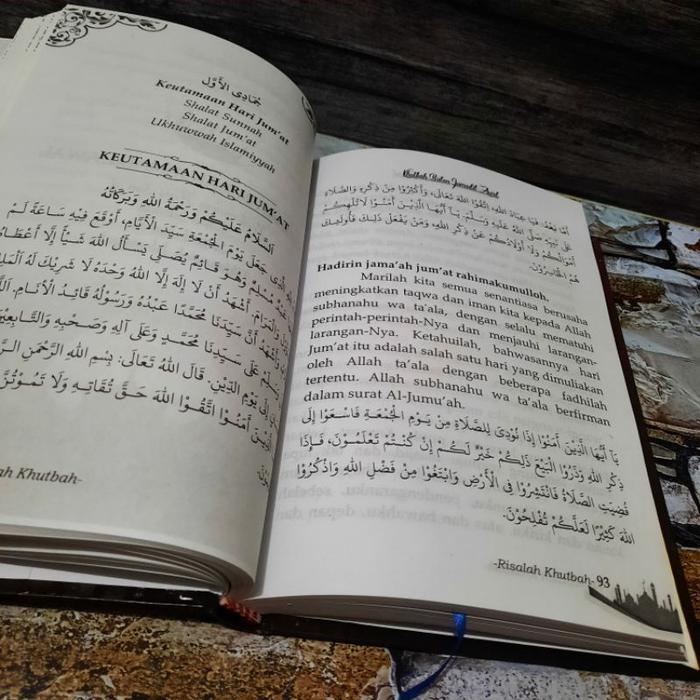 جُمَادِى الْأَوَّل
Keutamaan Hari Jum'at
Shalat Sunnah
Shalat Jum'at
Ukhuwwah Islamiyyah
KEUTAMAAN HARI JUM'AT
اَلسَّلَامُ عَلَيْكُمْ وَرَحْمَةُ اللهِ وَبَرَكَاتُهُ
الَّذِى جَعَلَ يَوْمَ الْجُمُعَةِ سَيِّدَ الْأَيَّامِ، أَوْقَعَ فِيْهِ سَاعَةً لَمْ
عَبْدٌ مُسْلِمٌ وَهُوَ قَائِمٌ يُصَلِّى يَسْأَلُ اللهَ شَيْأً إِلَّا أَعْطَاهُ
أَشْهَدُ أَنْ لَا إِلَهَ إِلَّا اللهُ وَحْدَهُ لَا شَرِيْكَ لَهُ الْمَلِكُ
وَأَشْهَدُ أَنَّ سَيِّدَنَا مُحَمَّدًا عَبْدُهُ وَرَسُوْلُهُ قَائِدُ الْأَنَامِ.
وَسَلِّمْ عَلَى سَيِّدِنَا مُحَمَّدٍ وَعَلَى آلِهِ وَصَحْبِهِ وَالتَّابِعِيْنَ
إِلَى يَوْمِ الدِّيْنِ. قَالَ اللهُ تَعَالَى: بِسْمِ اللهِ الرَّحْمَنِ
الَّذِيْنَ آمَنُوْا اتَّقُوْا اللهَ حَقَّ تُقَاتِهِ وَلَا تَمُوْتُنَّ
ah Khutbah-
Khutbah Bulan Jumadil Awal
أَمَّا بَعْدُ، فَيَا عِبَادَ اللهِ، اِتَّقُوْا اللهَ تَعَالَى، وَأَكْثِرُوْا مِنْ ذِكْرِهِ وَالصَّلَاةِ
عَلَى نَبِيِّهِ صَلَّى اللهُ عَلَيْهِ وَسَلَّمَ. يَآ أَيُّهَا الَّذِيْنَ آمَنُوْا لَا تُلْهِكُمْ
أَمْوَالُكُمْ وَلَا أَوْلَادُكُمْ عَنْ ذِكْرِ اللهِ وَمَنْ يَفْعَلْ ذَلِكَ فَأُولَئِكَ
هُمُ الْخَاسِرُوْنَ.
Hadirin jama'ah jum'at rahimakumulloh,
Marilah kita semua senantiasa berusaha
meningkatkan taqwa dan iman kita kepada Allah
subhanahu wa ta'ala, dengan selalu mematuhi
perintah-perintah-Nya dan menjauhi larangan-
larangan-Nya. Ketahuilah, bahwasannya hari
Jum'at itu adalah salah satu hari yang dimuliakan
oleh Allah ta'ala dengan beberapa fadhilah
tertentu. Allah subhanahu wa ta'ala berfirman
dalam surat Al-Jumu'ah.
يَآ أَيُّهَا الَّذِيْنَ آمَنُوْا إِذَا نُوْدِيَ لِلصَّلَاةِ مِنْ يَوْمِ الْجُمُعَةِ فَاسْعَوْا إِلَى
ذِكْرِ اللهِ وَذَرُوْا الْبَيْعَ ذَلِكُمْ خَيْرٌ لَكُمْ إِنْ كُنْتُمْ تَعْلَمُوْنَ، فَإِذَا
قُضِيَتِ الصَّلَاةُ فَانْتَشِرُوْا فِى الْأَرْضِ وَابْتَغُوْا مِنْ فَضْلِ اللهِ وَاذْكُرُوْا
اللهَ كَثِيْرًا لَعَلَّكُمْ تُفْلِحُوْنَ.
-Risalah Khutbah- 93